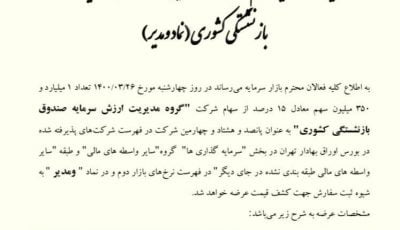 بازنشستگی کشوری (نماد ومدیر)
به اطلاع کلیه فعالان محترم بازار سرمایه می‌رساند در روز چهارشنبه مورخ ۱۴۰۰/۰۳/۲۶ تعداد ۱ میلیارد و
۳۵۰ میلیون سهم معادل ۱۵ درصد از سهام شرکت "گروه مدیریت ارزش سرمایه صندوق
بازنشستگی کشوری" به عنوان پانصد و هشتاد و چهارمین شرکت در فهرست شرکت‌های پذیرفته شده
در بورس اوراق بهادار تهران در بخش "سرمایه گذاری ها" گروه"سایر واسطه های مالی" و طبقه "سایر
واسطه های مالی طبقه بندی نشده در جای دیگر" در فهرست نرخ‌های بازار دوم و در نماد "ومدیر" به
شیوه ثبت سفارش جهت کشف قیمت عرضه خواهد شد.
مشخصات عرضه به شرح زیر می‌باشد: